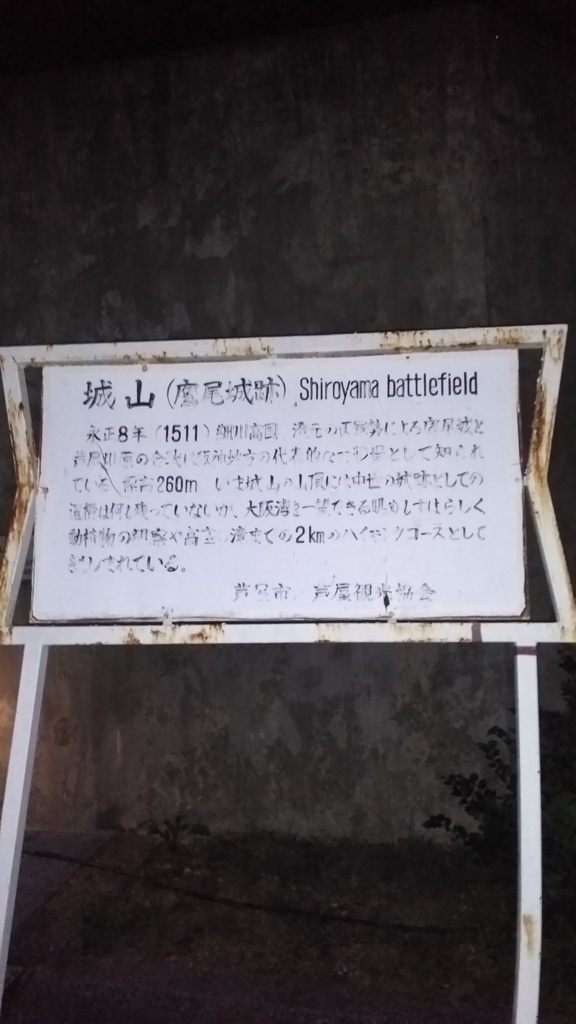 城山(鷹尾城跡) Shiroyama battlefield
永正8年(1511)細川高国 澄元の両軍勢による鷹尾城と
芦屋川原の合戦は阪神地方の代表的な古戦場として知られ
ている 標高260m いま城山の山頂には中世の城跡としての
遺構は何も残っていないが、大阪湾を一望できる眺めもすばらしく
動植物の観察や高座の滝までの2kmのハイキングコースとして
親しまれている。
芦屋市 芦屋観光協会